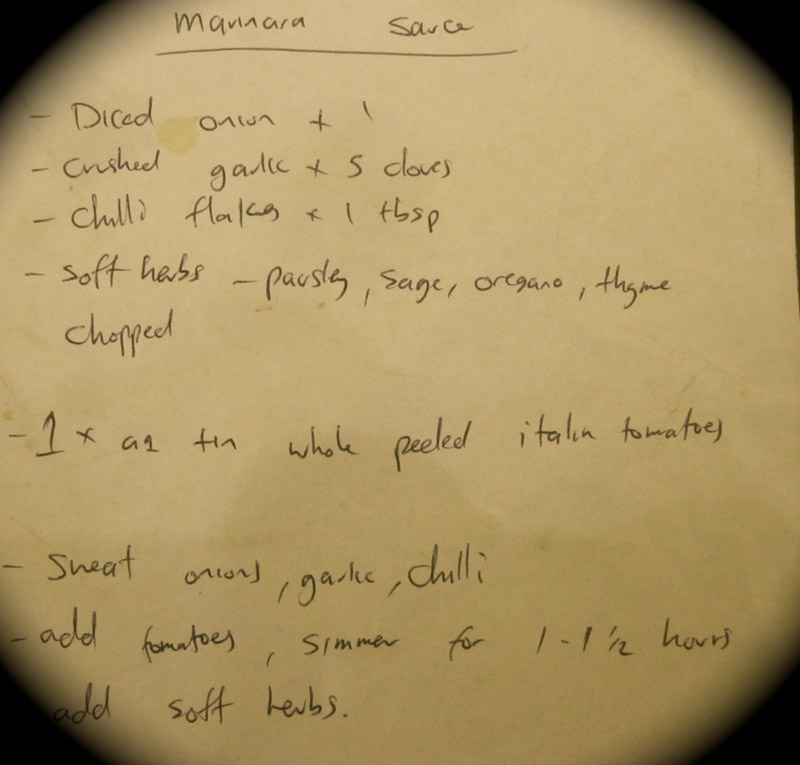 Marinara Sauce
- Diced onion x 1
- Crushed garlic x 5 cloves
- Chilli flakes x 1 tbsp
- Soft herbs - parsley, sage, oregano, thyme
chopped
- 1 x a1 tin whole peeled italin tomatoes
- Sweat onions, garlic, chilli
- add tomatoes, simmer for 1 - 1 1/2 hours
add soft herbs.